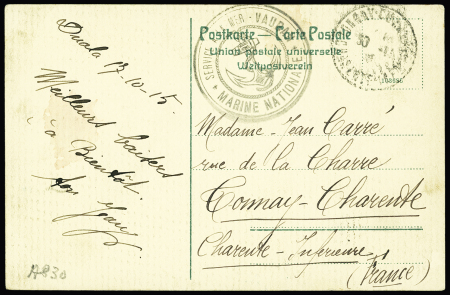 Postkarte – Carte Postale
Union postale universelle
Weltpostverein
SERVICE À LA MER
MARINE NATIONALE
Duala 17-10-15
Meilleurs baisers
à Bientôt.
ton Jean
Madame Jean Carré
rue de la Charre
Tonnay-Charente
Charente-Inférieure
(France)
A830